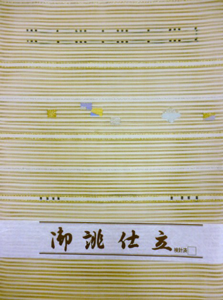 御誂仕立